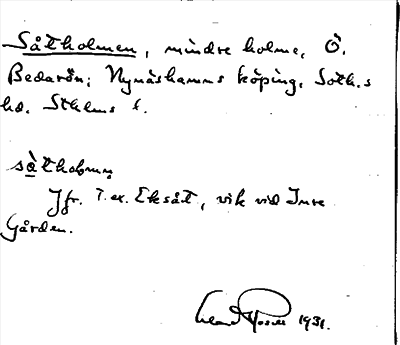 Såtholmen, mindre holme, Ö.
Bedarön, Nynäshamns köping, Soth.s
hd. Sthlms l.
såtholmen
Jfr. t.ex. Eksåt, vik vid Inre
Gården.
1931.